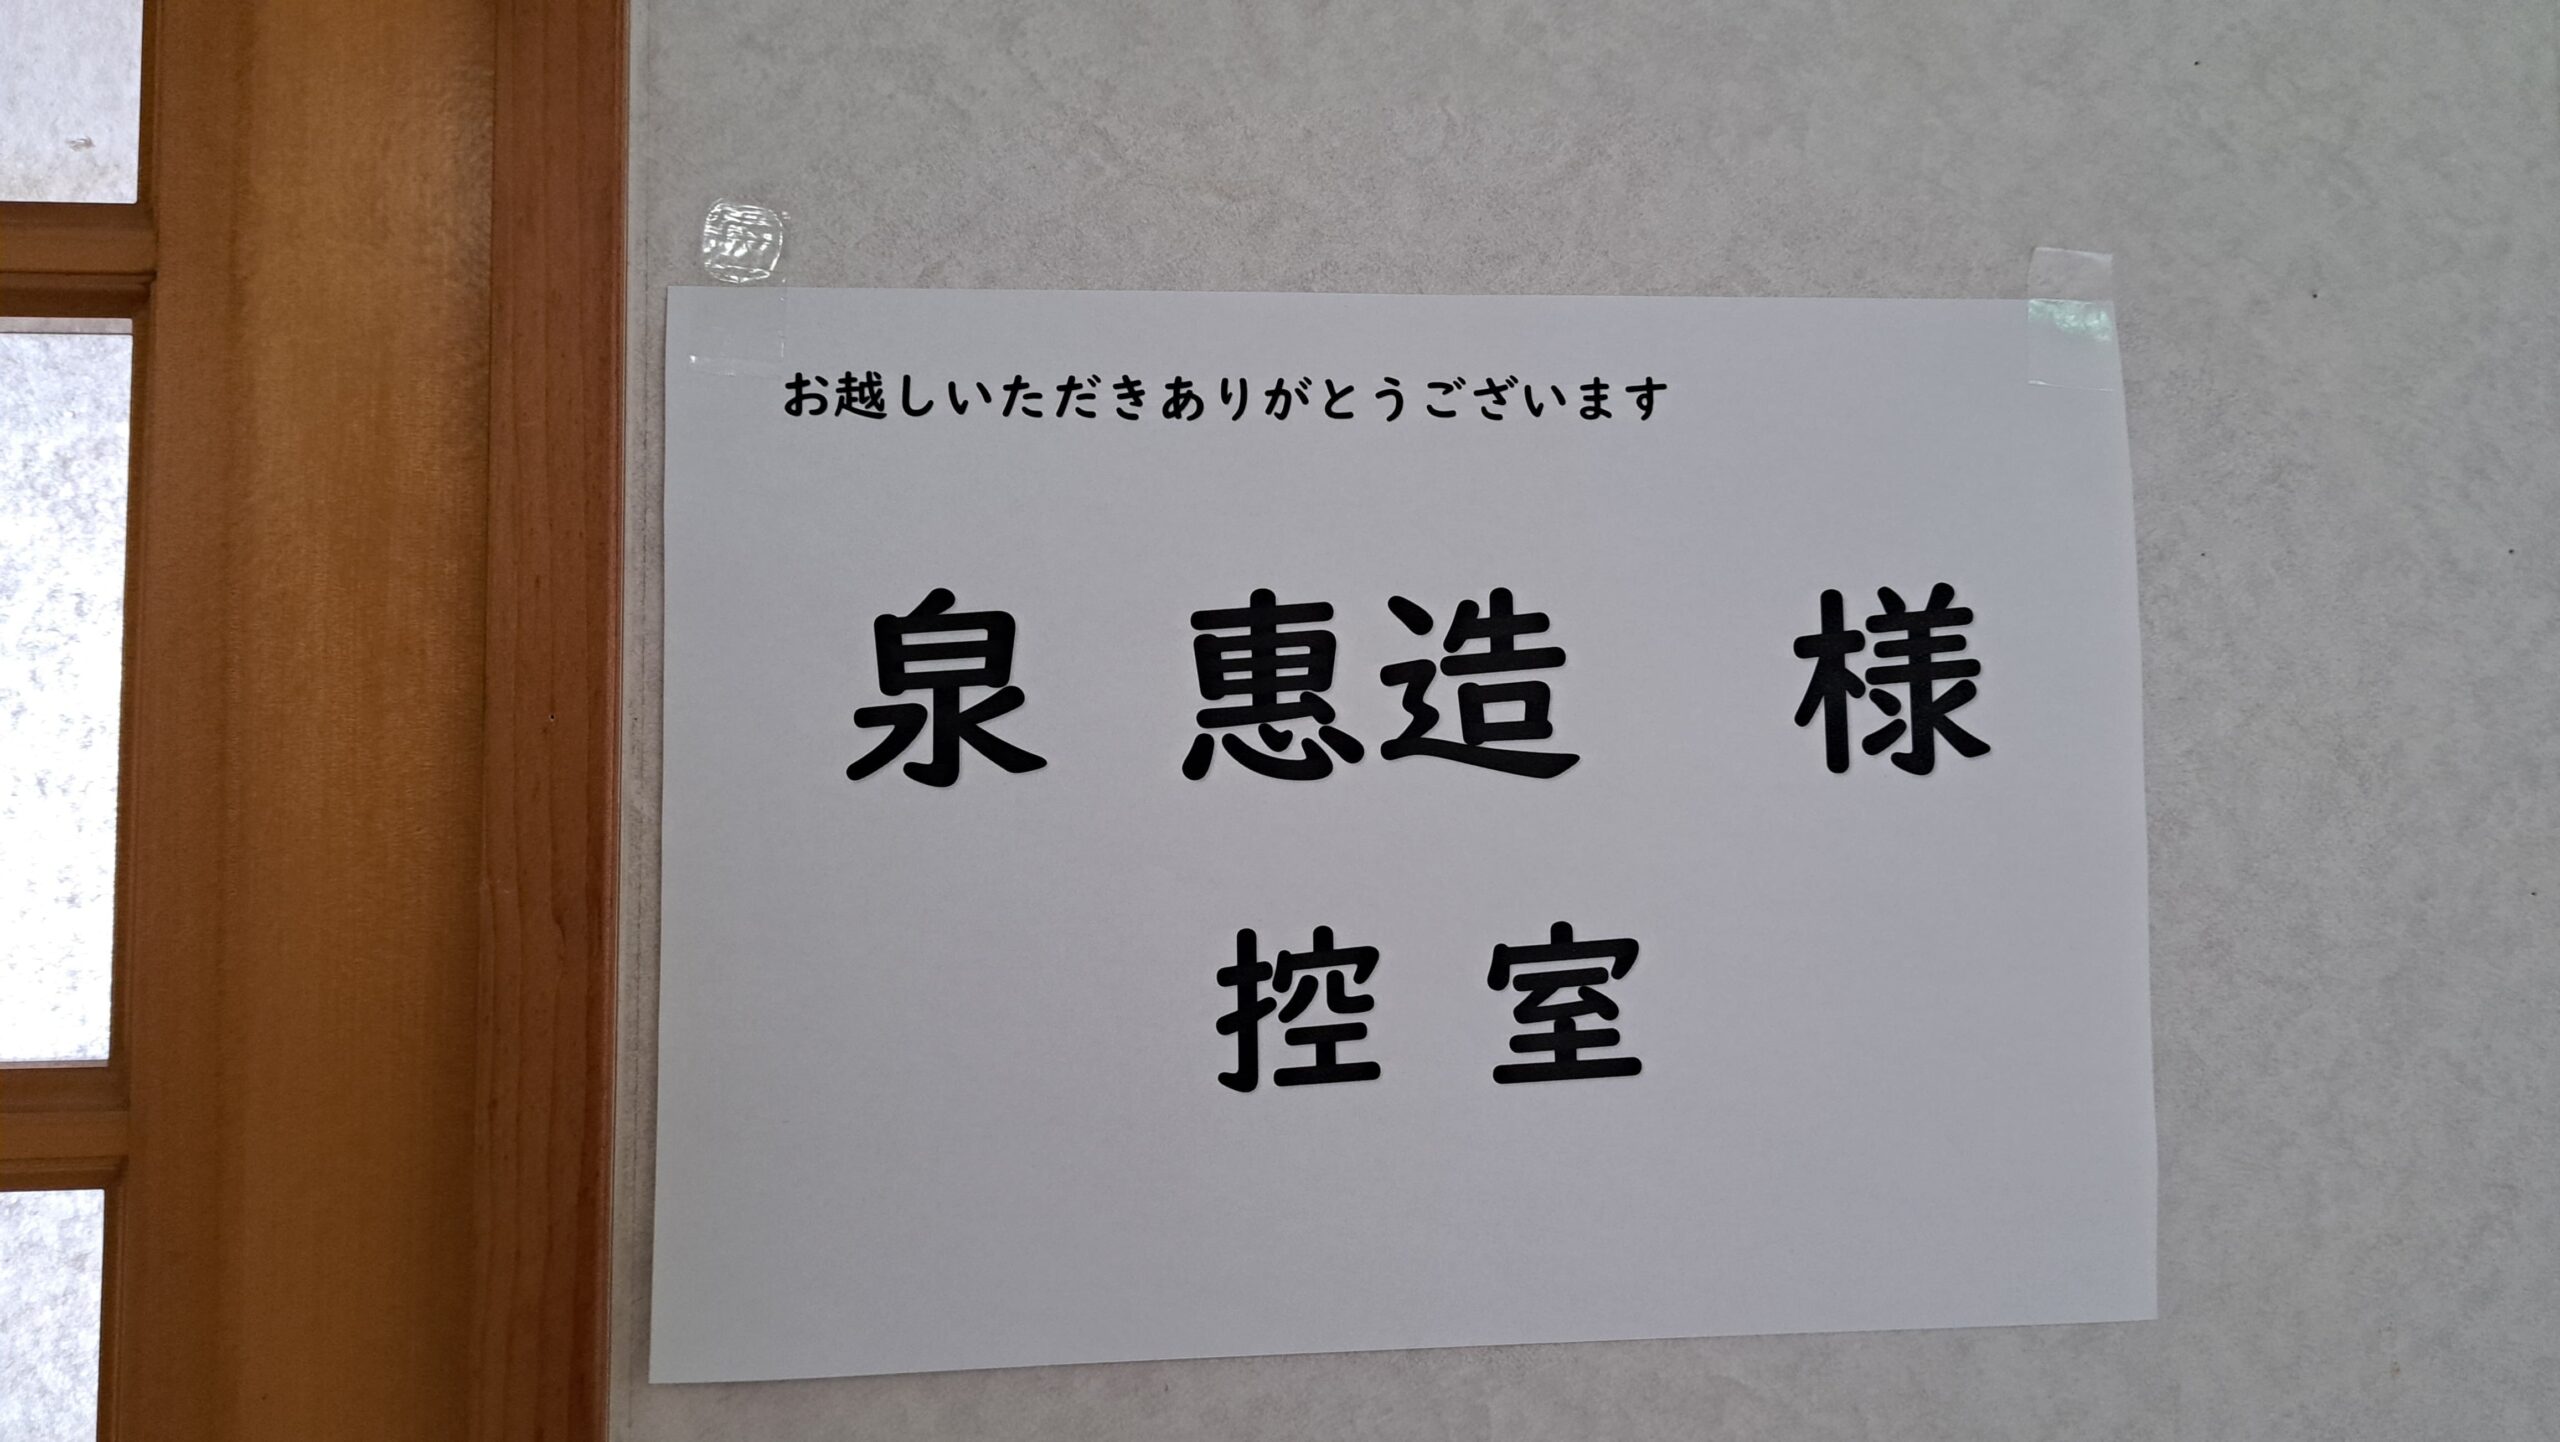 お越しいただきありがとうございます
泉 惠造 様
控 室